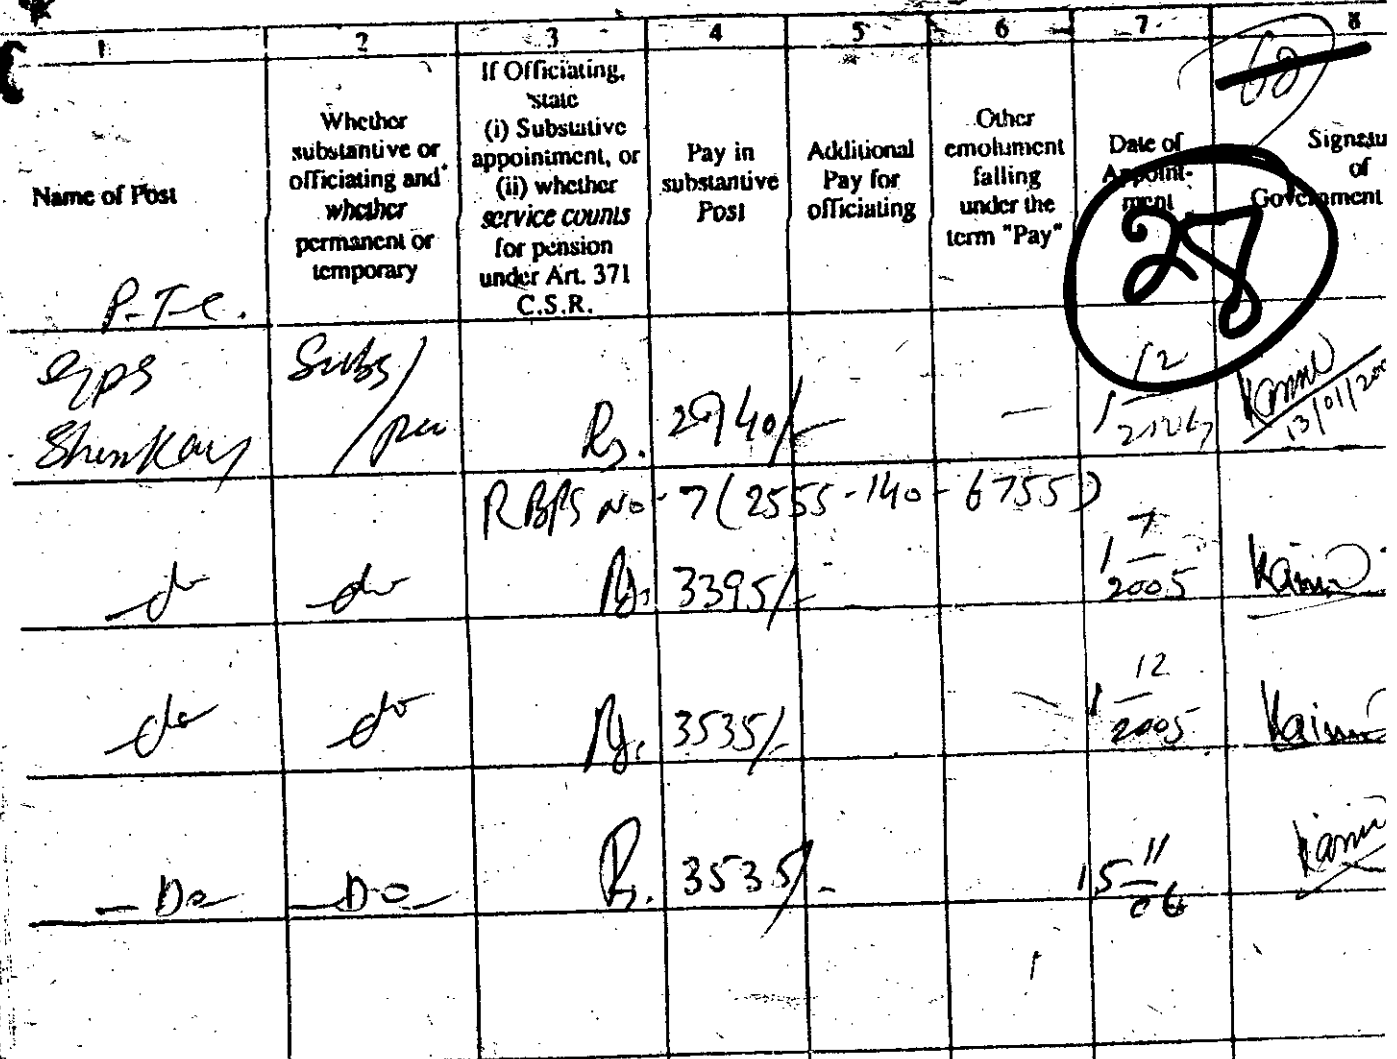 1 2 3 4 5 6 7 8
Name of Post
Whether
substantive or
officiating and
whether
permanent or
temporary
If Officiating,
state
(i) Substative
appointment, or
(ii) whether
service counts
for pension
under Art. 371
C.S.R.
Pay in
substantive
Post
Additional
Pay for
officiating
Other
emolument
falling
under the
term "Pay"
Date of
Appoint-
ment
of
Government
28
P.T.C.
Subs/
Rs. 2940/- — 1 12
13/01/
RBPS No-7(2555-140-6755)
do do Rs. 3395/- 1 7 2005
do do Rs. 3535/- 1 12 2005
Do Do Rs. 3535/- 15 11 06